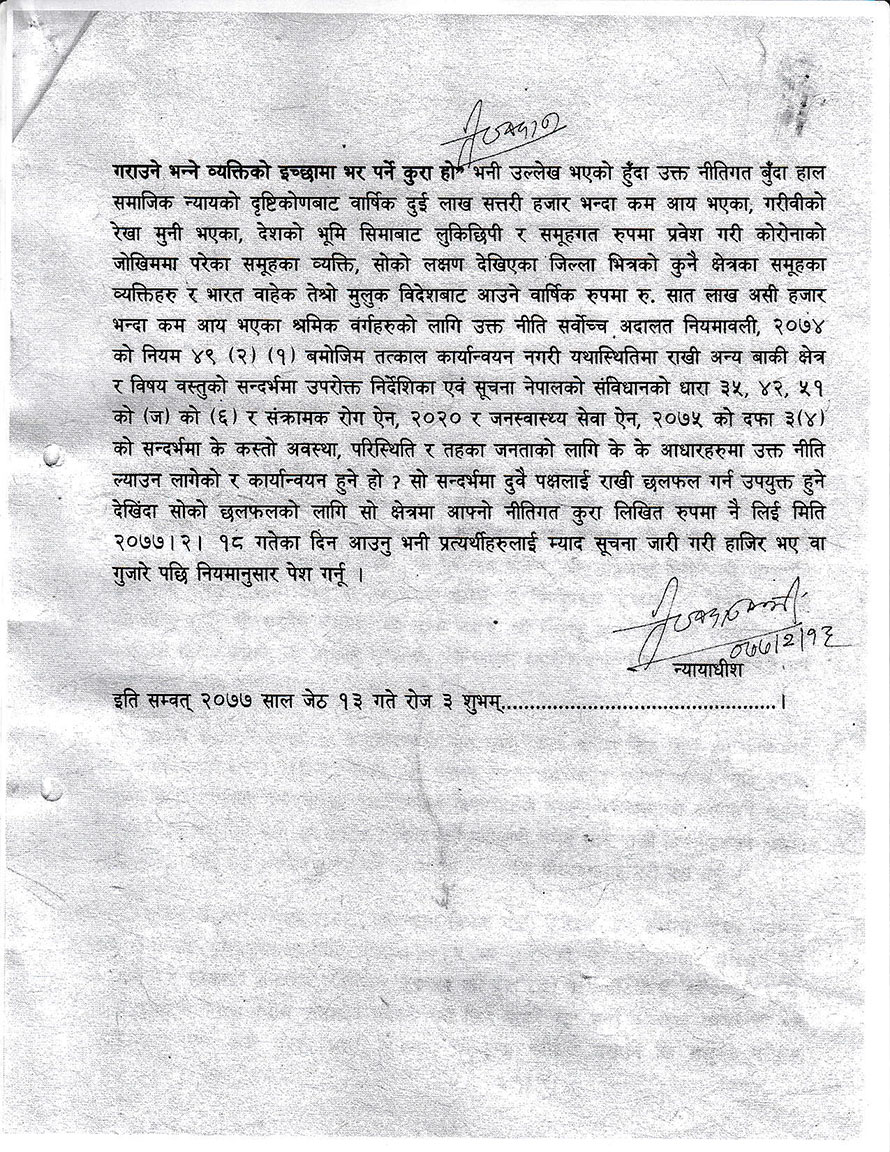 गराउने भन्ने व्यक्तिको इच्छामा भर पर्ने कुरा हो" भनी उल्लेख भएको हुँदा उक्त नीतिगत बुँदा हाल
समाजिक न्यायको दृष्टिकोणबाट वार्षिक दुई लाख सत्तरी हजार भन्दा कम आय भएका, गरीवीको
रेखा मुनी भएका, देशको भूमि सिमाबाट लुकिछिपी र समूहगत रुपमा प्रवेश गरी कोरोनाको
जोखिममा परेका समूहका व्यक्ति, सोको लक्षण देखिएका जिल्ला भित्रको कुनै क्षेत्रका समूहका
व्यक्तिहरु र भारत वाहेक तेश्रो मुलुक विदेशबाट आउने वार्षिक रुपमा रु. सात लाख असी हजार
भन्दा कम आय भएका श्रमिक वर्गहरुको लागि उक्त नीति सर्वोच्च अदालत नियमावली, २०७४
को नियम ४९ (२) (१) बमोजिम तत्काल कार्यान्वयन नगरी यथास्थितिमा राखी अन्य बाकी क्षेत्र
र विषय वस्तुको सन्दर्भमा उपरोक्त निर्देशिका एवं सूचना नेपालको संविधानको धारा ३५, ४२, ५१
को (ज) को (६) र संक्रामक रोग ऐन, २०२० र जनस्वास्थ्य सेवा ऐन, २०७५ को दफा ३(४)
को सन्दर्भमा के कस्तो अवस्था, परिस्थिति र तहका जनताको लागि के के आधारहरुमा उक्त नीति
ल्याउन लागेको र कार्यान्वयन हुने हो ? सो सन्दर्भमा दुवै पक्षलाई राखी छलफल गर्न उपयुक्त हुने
देखिंदा सोको छलफलको लागि सो क्षेत्रमा आफ्नो नीतिगत कुरा लिखित रुपमा नै लिई मिति
२०७७।२। १८ गतेका दिन आउनु भनी प्रत्यर्थीहरुलाई म्याद सूचना जारी गरी हाजिर भए वा
गुजारे पछि नियमानुसार पेश गर्नू ।
०७७।२।१३
न्यायाधीश
इति सम्वत् २०७७ साल जेठ १३ गते रोज ३ शुभम्...............................................।